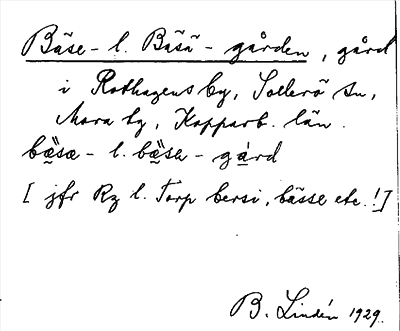 Bäse- l. Bäsä- gården, gård
i Rothagens by, Sollerö sn,
Mora tg, Kopparb. län.
bæsæ- l. bæsa- gård
[jfr Rz l. Torp bersi, bässe etc.!]
B. Lindén 1929.